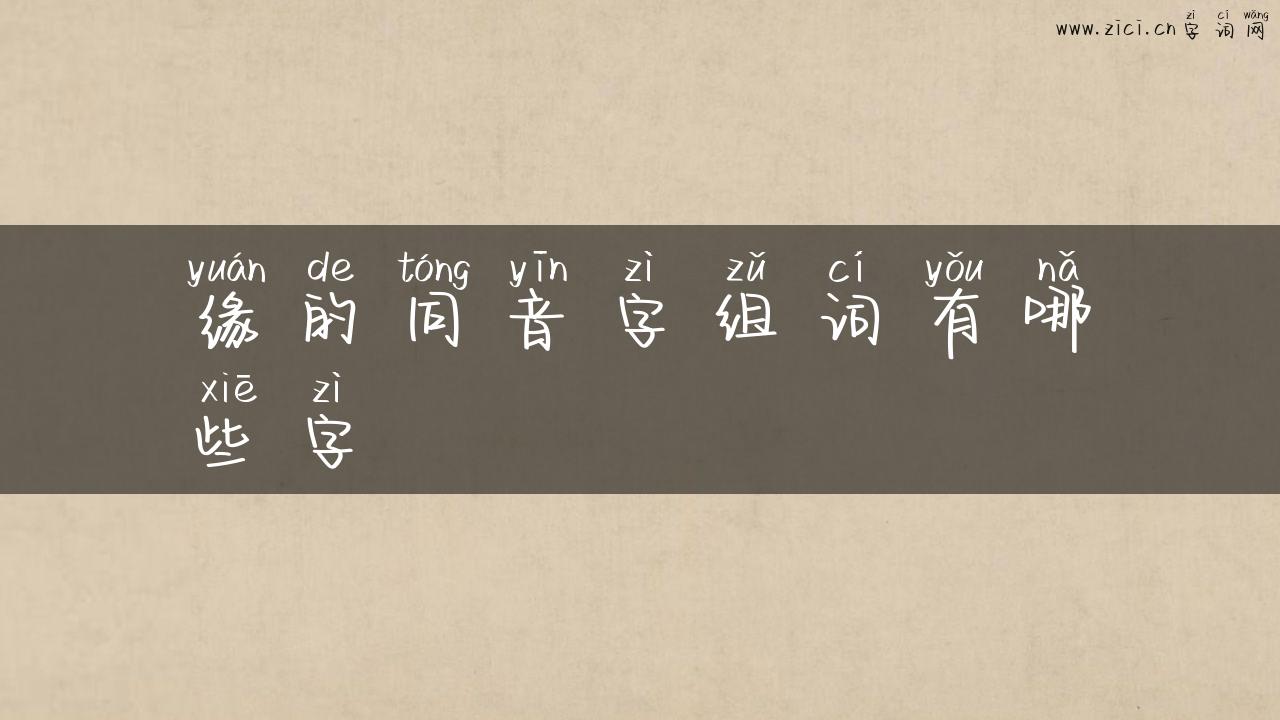 zì cí wǎng
www.zici.cn 字词网
yuán de tóng yīn zì zǔ cí yǒu nǎ
缘的同音字组词有哪
xiē zì
些字